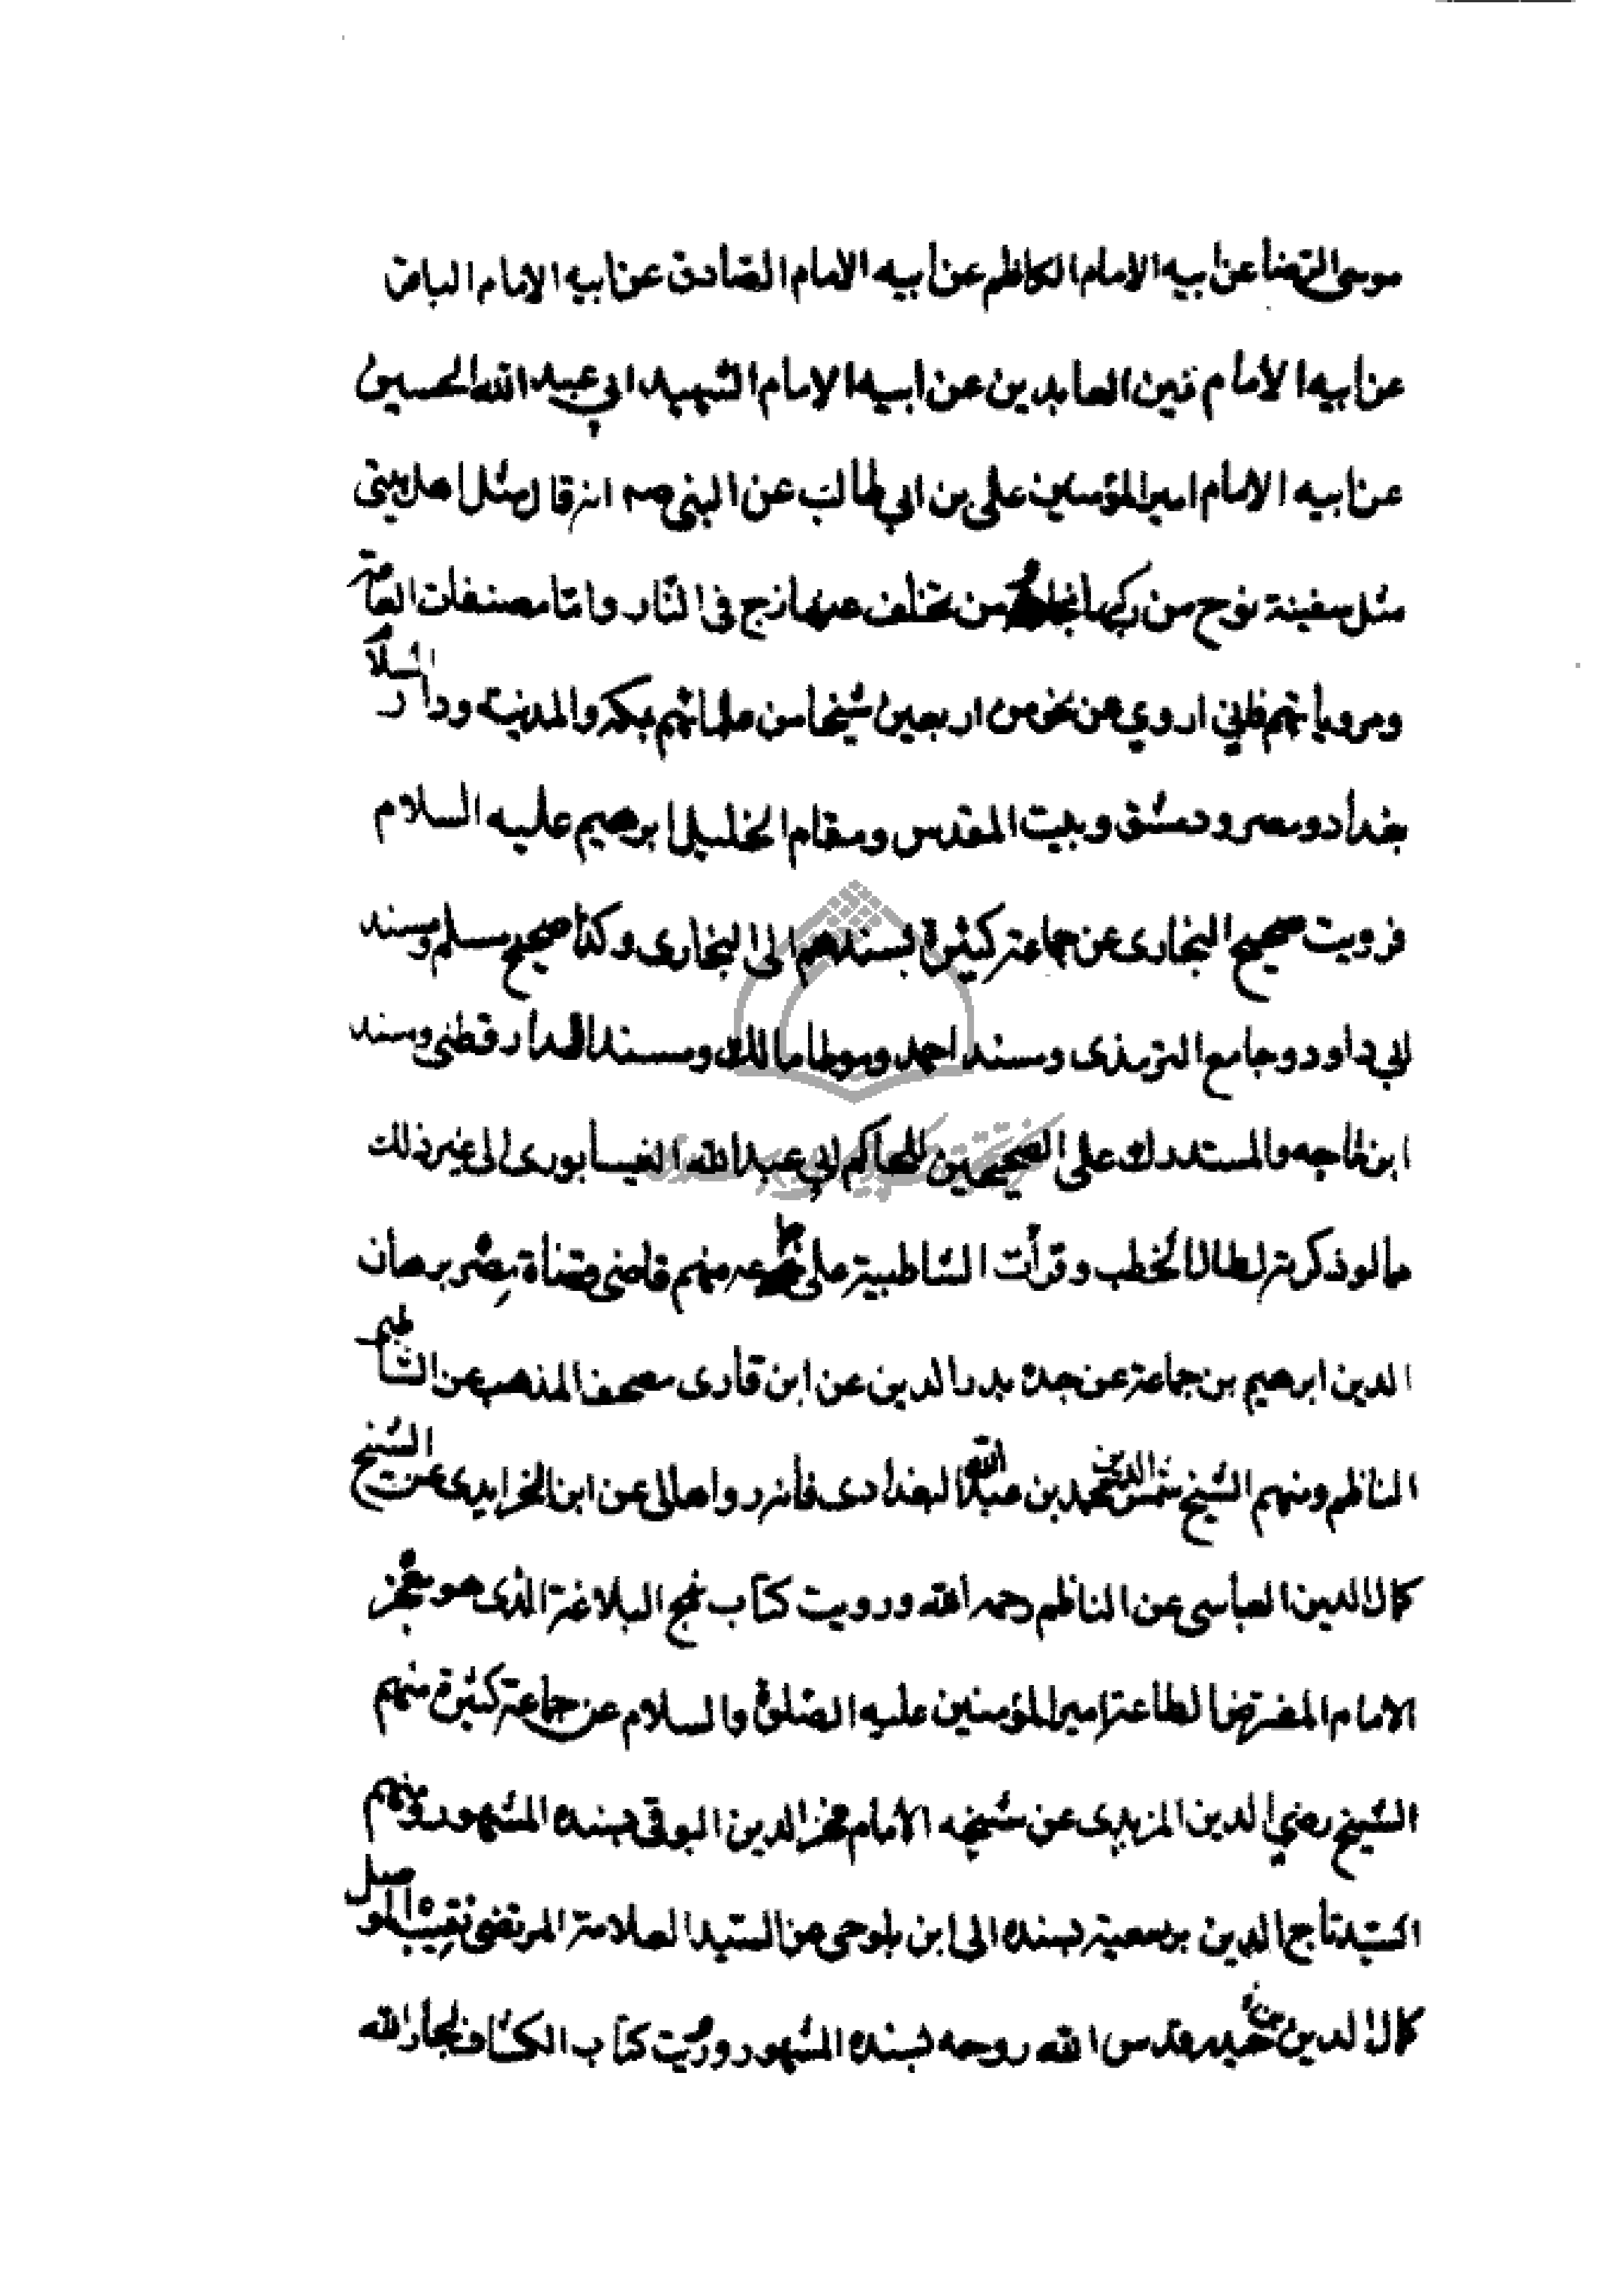 موسى الرضا عن ابيه الامام الكاظم عن ابيه الامام الصادق عن ابيه الامام الباقر
عن ابيه الامام زين العابدين عن ابيه الامام الشهيد ابي عبد الله الحسين
عن ابيه الامام امير المؤمنين على بن ابي طالب عن النبى صم انه قال مثل اهل بيتى
مثل سفينة نوح من ركبها نجا ومن تخلف عنها زج فى النار واما مصنفات العامة
ومروياتهم فاني اروي عن نحو من اربعين شيخا من علمائهم بمكه والمدينة ودار السلام
بغداد ومصر ودمشق وبيت المقدس ومقام الخليل ابرهيم عليه السلام
فرويت صحيح البخارى عن جماعة كثيرة بسندهم الى البخارى وكذا صحيح مسلم ومسند
ابي داود وجامع الترمذى ومسند احمد وموطا مالك ومسند الدارقطنى ومسند
ابن ماجه والمستدرك على الصحيحين للحاكم ابي عبد الله النيسابورى الى غير ذلك
مما لو ذكرته لطال الخطب وقرأت الشاطبية على جماعه منهم قاضى قضاة مصر برهان
الدين ابرهيم بن جماعة عن جده بدر الدين عن ابن قارى مصحف الذهب عن الشاطبى
الناظم ومنهم الشيخ شمس الدين محمد بن عبد الله البغدادى فأنه رواها لى عن ابن الخرايدى عن الشيخ
كمال الدين العباسى عن الناظم رحمه الله ورويت كتاب نهج البلاغة الذى هو معجز
الامام المفترض الطاعة امير المؤمنين عليه الصلوة والسلام عن جماعة كثيرة منهم
الشيخ رضي الدين المزيدى عن شيخه الامام فخر الدين البوقى بسنده المشهور ومنهم
السيد تاج الدين بن معية بسنده الى ابن بلوحى عن السيد العلامة المرتضى نقيب الموصل
كمال الدين بن حيدر قدس الله روحه بسنده المشهور ورويت كتاب الكشاف لجار الله